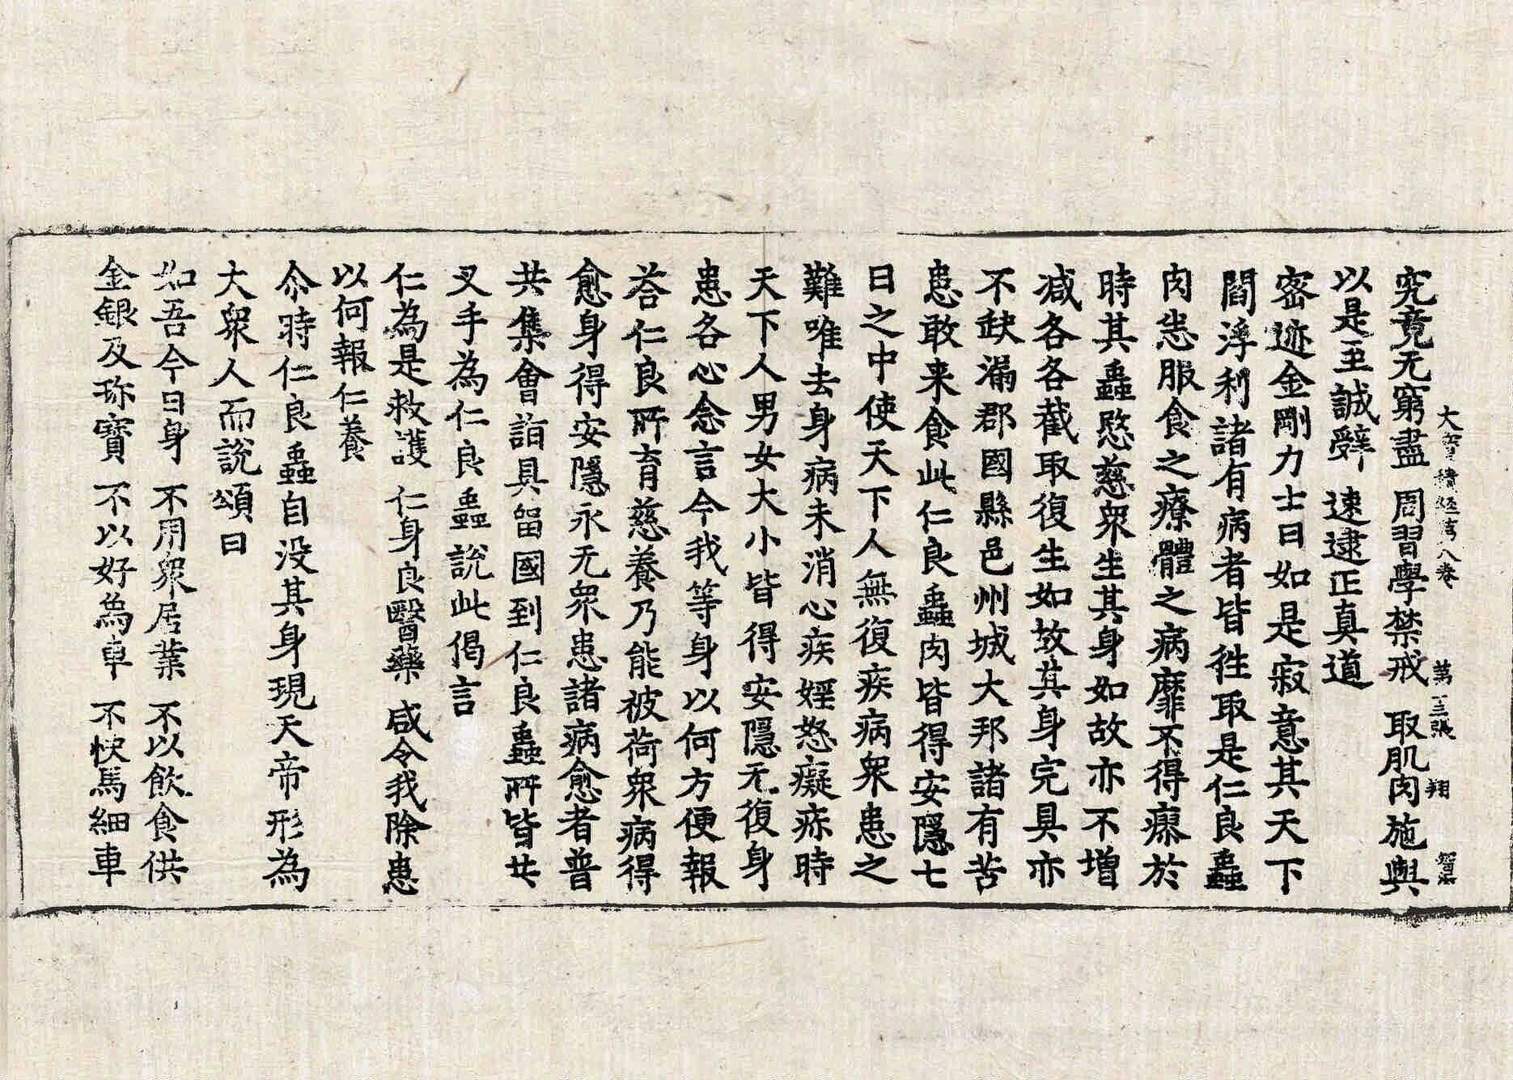 究竟无窮盡 周習學禁戒 取肌肉施與
大寶積經第八卷 第三張 翔
以是至誠辭 速逮正真道
密迹金剛力士曰如是寂意其天下
閻浮利諸有病者皆徃取是仁良䖝
肉恣服食之療體之病靡不得瘳於
時其䖝愍慈衆生其身如故亦不增
减各各截取復生如故其身完具亦
不缺漏郡國縣邑州城大邦諸有苦
患敢来食此仁良䖝肉皆得安隱七
日之中使天下人無復疾病衆患之
難唯去身病未消心疾婬怒癡疹時
天下人男女大小皆得安隱无復身
患各心念言今我等身以何方便報
荅仁良所育慈養乃能被荷衆病得
愈身得安隱永无衆患諸病愈者普
共集會詣具留國到仁良䖝所皆共
叉手為仁良䖝說此偈言
仁為是救護 仁身良醫藥 咸令我除患
以何報仁養
尒時仁良䖝自没其身現天帝形為
大衆人而說頌曰
如吾今日身 不用衆居業 不以飲食供
金銀及珎寶 不以好為車 不快馬細車